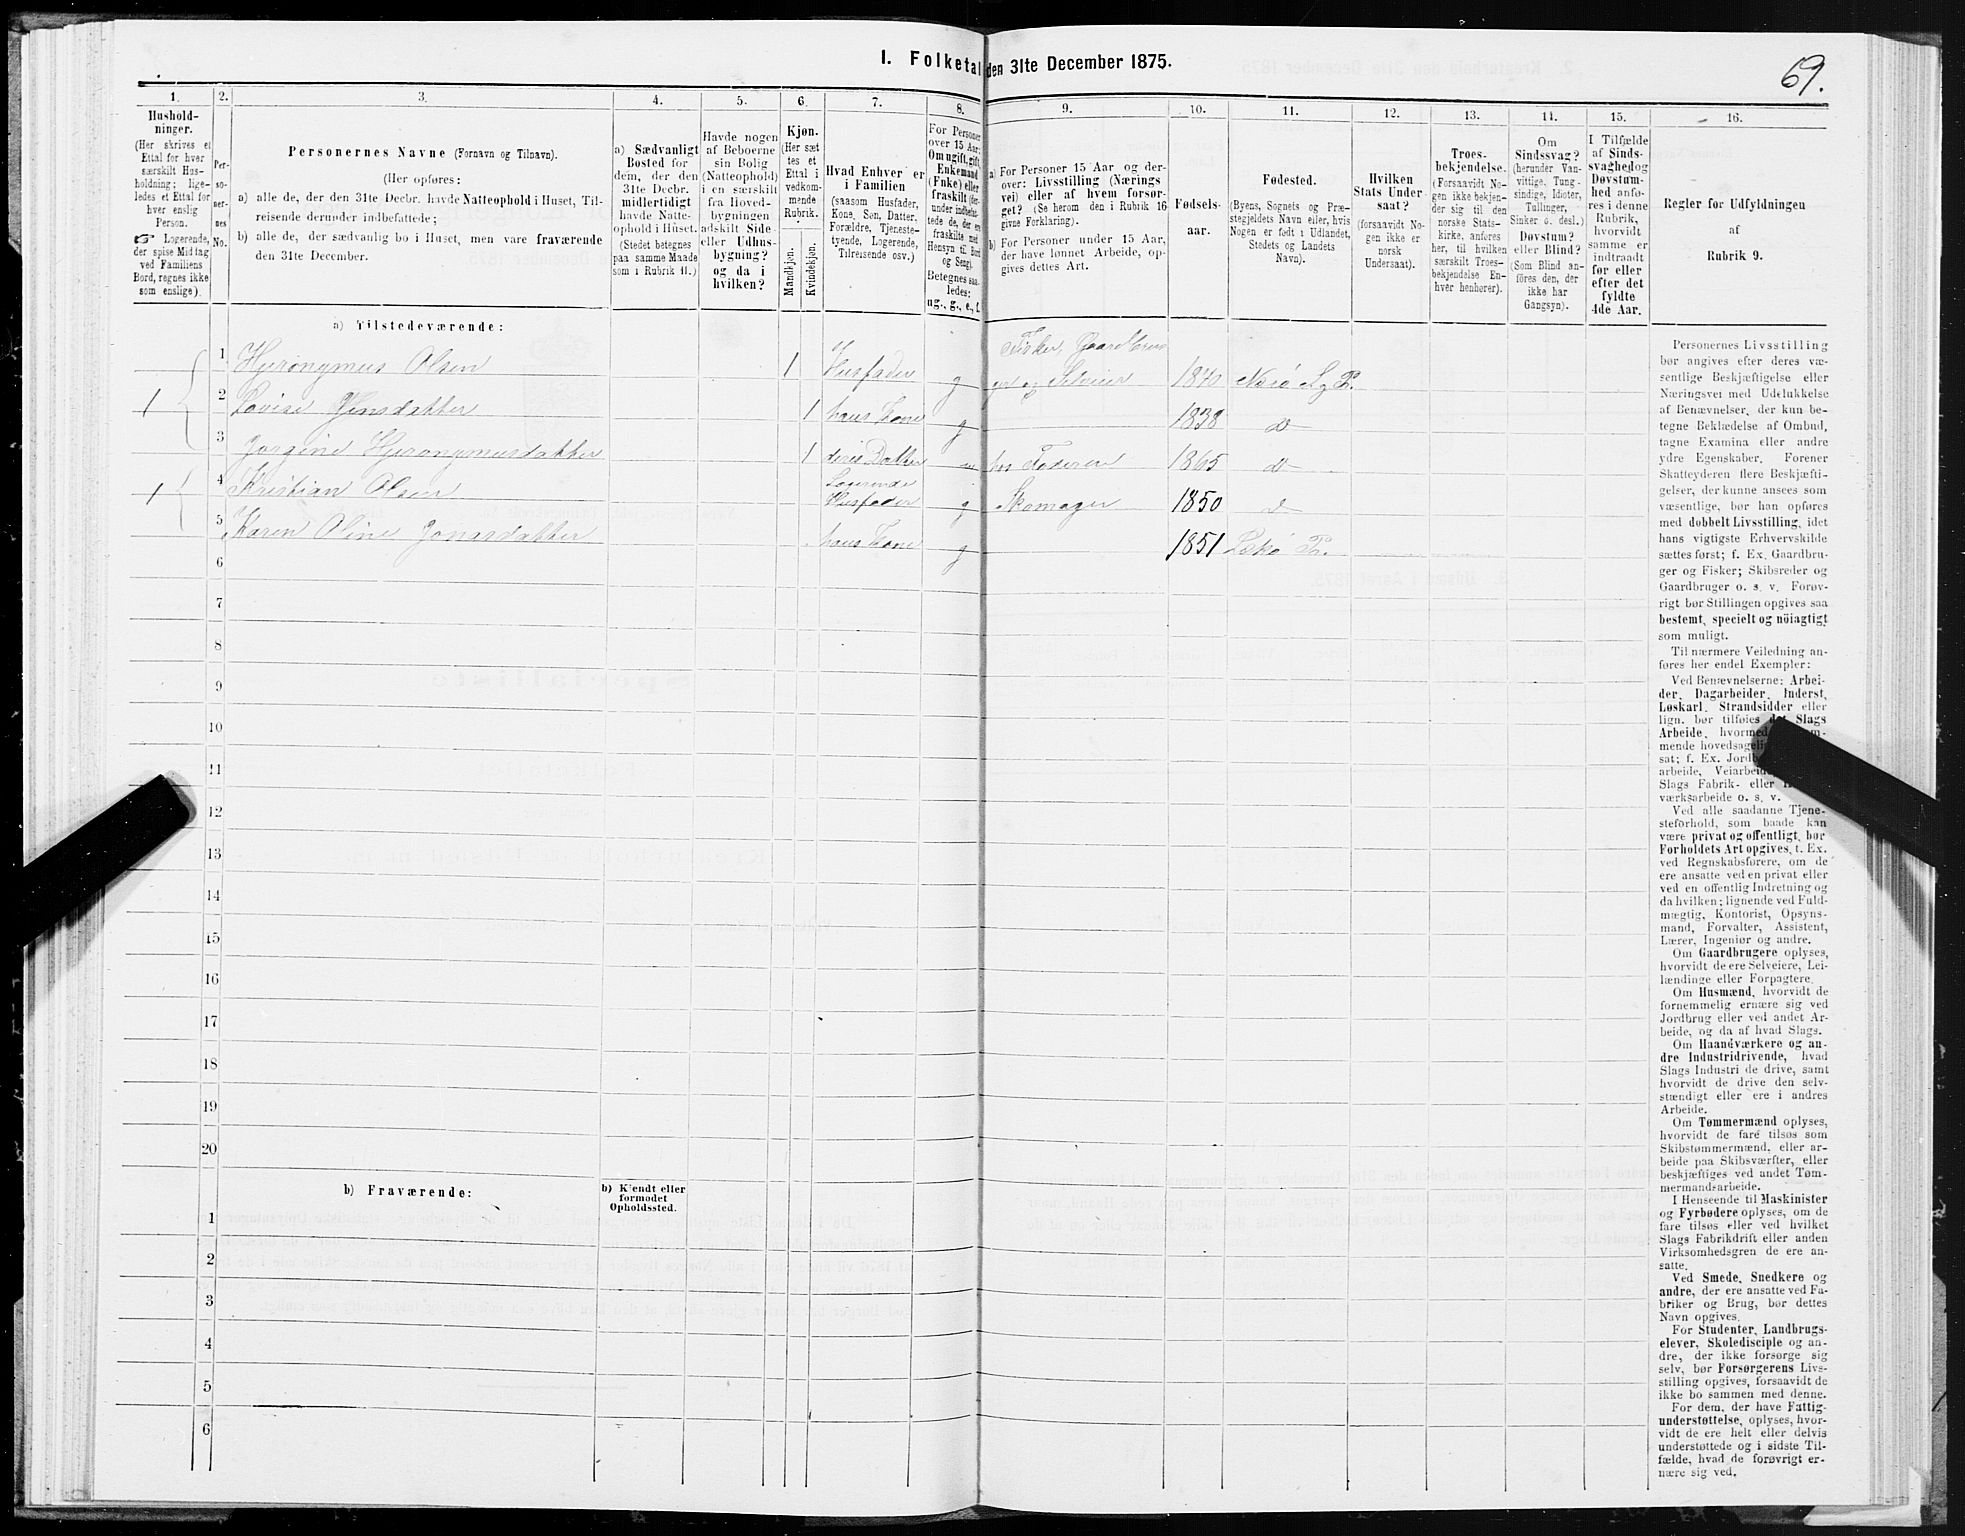 I. Folketal den 31te December 1875.
69.
1. 2. 3. 4. 5. 6. 7. 8. 9. 10. 11. 12. 13. 14. 15. 16.
Hushold-
ninger.
(Her skrives et
Ettal for hver
særskilt Hus-
holdning; lige-
ledes et Ettal for
hver enslig
Person.
☞ Logerende,
der spise Middag
ved Familiens
Bord, regnes ikke
som enslige).
Per-
so-
ner-
nes
No.
Personernes Navne (Fornavn og Tilnavn).
(Her opføres:
a) alle de, der den 31te Decbr. havde Natteophold i Huset, Til-
reisende derunder indbefattede;
b) alle de, der sædvanlig bo i Huset, men vare fraværende
den 31te December.
a) Sædvanligt
Bosted for
dem, der den
31te Decbr.
midlertidigt
havde Natte-
ophold i Huset.
(Stedet betegnes
paa samme Maade
som i Rubrik 11.)
Havde nogen
af Beboerne
sin Bolig
(Natteophold)
i en særskilt
fra Hoved-
bygningen
adskilt Side-
eller Udhus-
bygning?
og da i
hvilken?
Kjøn.
(Her sæt
tes et
Ettal i
vedkom-
mende
Rubrik.
Mandkjøn.
Kvindekjøn.
Hvad Enhver er
i Familien
(saasom Husfader,
Kone, Søn, Datter,
Forældre, Tjeneste-
tyende, Logerende,
Tilreisende osv.)
For Personer
over 15 Aar:
Om ugift, gift,
Enkemand
(Enke) eller
fraskilt (for-
under indbefat-
tede de, der ere
fraskilte med
Hensyn til Bord
og Seng).
Betegnes saa-
ledes:
ug., g., e., f.
a) For Personer 15 Aar og der-
over: Livsstilling (Nærings
vei) eller af hvem forsør-
get? (Se herom den i Rubrik 16
givne Forklaring).
b) For Personer under 15 Aar,
der have lønnet Arbeide, op-
gives dettes Art.
Fødsels-
aar.
Fødested.
(Byens, Sognets og Præ-
stegjeldets Navn eller, hvis
Nogen er født i Udlandet,
Stedets og Landets
Navn).
Hvilken
Stats Under-
saat?
(forsaavidt No-
gen ikke er
norsk
Undersaat).
Troes-
bekjendelse.
(Forsaavidt No-
gen ikke bekjen-
der sig til den
norske Stats-
kirke, anføres
her, til hvilken
særskilt Troes-
bekjendelse En-
hver henhører).
Om
Sindssvag?
(herunder Van-
vittige, Tung-
sindige, Idioter,
Tullinger,
Sinker o. desl.)
Døvstum?
eller Blind?
(Som Blind an-
føres den, der
ikke har
Gangsyn).
I Tilfælde
af Sinds-
svaghed og
Døvstum-
hed anfø-
res i denne
Rubrik,
hvorvidt
samme er
indtraadt
før eller
efter det
fyldte
4de Aar.
Regler for Udfyldningen
af
Rubrik 9.
a) Tilstedeværende:
Fisker, Gaardbru-
1 Hjeronymus Olsen 1 Husfader g ger og Selveier 1840 Næsø S. P.
1 2 Lovise Jensdatter 1 hans Kone g 1838 do
3 Jorgine Hjeronymusdatter 1 deres Datter hos Faderen 1865 do
Logerende
1 4 Kristian Olsen Husfader g Skomager 1850 do
5 Karen Oline Jonasdatter hans Kone g 1851 Lekø P.
6
7
8
9
10
11
12
13
14
15
16
17
18
19
20
b) Fraværende:
b) Kjendt eller
formodet
Opholdssted.
1
2
3
4
5
6
Personernes Livsstilling
bør angives efter deres væ-
sentlige Beskjæftigelse eller
Næringsvei med Udelukkelse
af Benævnelser, der kun be-
tegne Beklædelse af Ombud,
tagne Examina eller andre
ydre Egenskaber. Forener
Skatteyderen flere Beskjæfti-
gelser, der kunne ansees som
væsentlige, bør han opføres
med dobbelt Livsstilling, idet
hans vigtigste Erhvervskilde
sættes først; f. Ex. Gaardbru-
ger og Fisker; Skibsreder og
Gaardbruger o. s. v. Forøv-
rigt bør Stillingen opgives saa
bestemt, specielt og nöiagtigt
som muligt.
Til nærmere Veiledning an-
føres her endel Exempler:
Ved Benævnelserne: Arbei-
der, Dagarbeider, Inderst,
Løskarl, Strandsidder eller
lign. bør tilføies det Slags
Arbeide, hvormed
mende hovedsagelig
sat; f. Ex.
arbeide, Veiarbeide,
Slags Fabrik- eller
værksarbeide o. s. v.
Ved alle saadanne Tjene-
steforhold, som baade kan
være privat og offentligt, bør
Forholdets Art opgives, t. Ex.
ved Regnskabsførere, om de
ere ansatte ved en privat eller
ved en offentlig Indretning og
da hvilken; lignende ved Fuld-
mægtig, Kontorist, Opsyns-
mand, Forvalter, Assistent,
Lærer, Ingeniør og andre.
Om Gaardbrugere oplyses,
hvorvidt de ere Selveiere, Lei-
lændinge eller Forpagtere.
Om Husmænd, hvorvidt de
fornemmelig ernære sig ved
Jordbrug eller ved andet Ar-
beide, og da af hvad Slags.
Om Haandværkere og an-
dre Industridrivende, hvad
Slags Industri de drive, samt
hvorvidt de drive den selv-
stændigt eller ere i andres
Arbeide.
Om Tømmermænd oplyses,
hvorvidt de fare tilsøs som
Skibstømmermænd, eller ar-
beide paa Skibsværfter, eller
beskjæftiges ved andet Tøm-
mermandsarbeide.
I Henseende til Maskinister
og Fyrbødere oplyses, om de
fare tilsøs eller ved hvilket
Slags Fabrikdrift eller anden
Virksomhedsgren de ere an-
satte.
Ved Smede, Snedkere og
andre, der ere ansatte ved Fa-
briker og Brug, bør dettes
Navn opgives.
For Studenter, Landbrugs-
elever, Skoledisciple og an-
dre, der ikke forsørge sig
selv, bør Forsørgerens Livs-
stilling opgives, forsaavidt de
ikke bo sammen med denne.
For dem, der have Fattig-
understøttelse, oplyses, hvor-
vidt de ere helt eller delvis
understøttede og i sidste Til-
fælde, hvad de forøvrigt er-
nære sig ved.